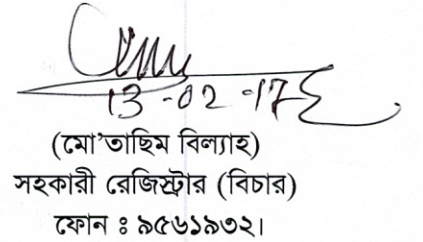 13-02-17ই
(মো'তাছিম বিল্যাহ)
সহকারী রেজিস্ট্রার (বিচার)
ফোন ঃ ৯৫৬১৯৩২।